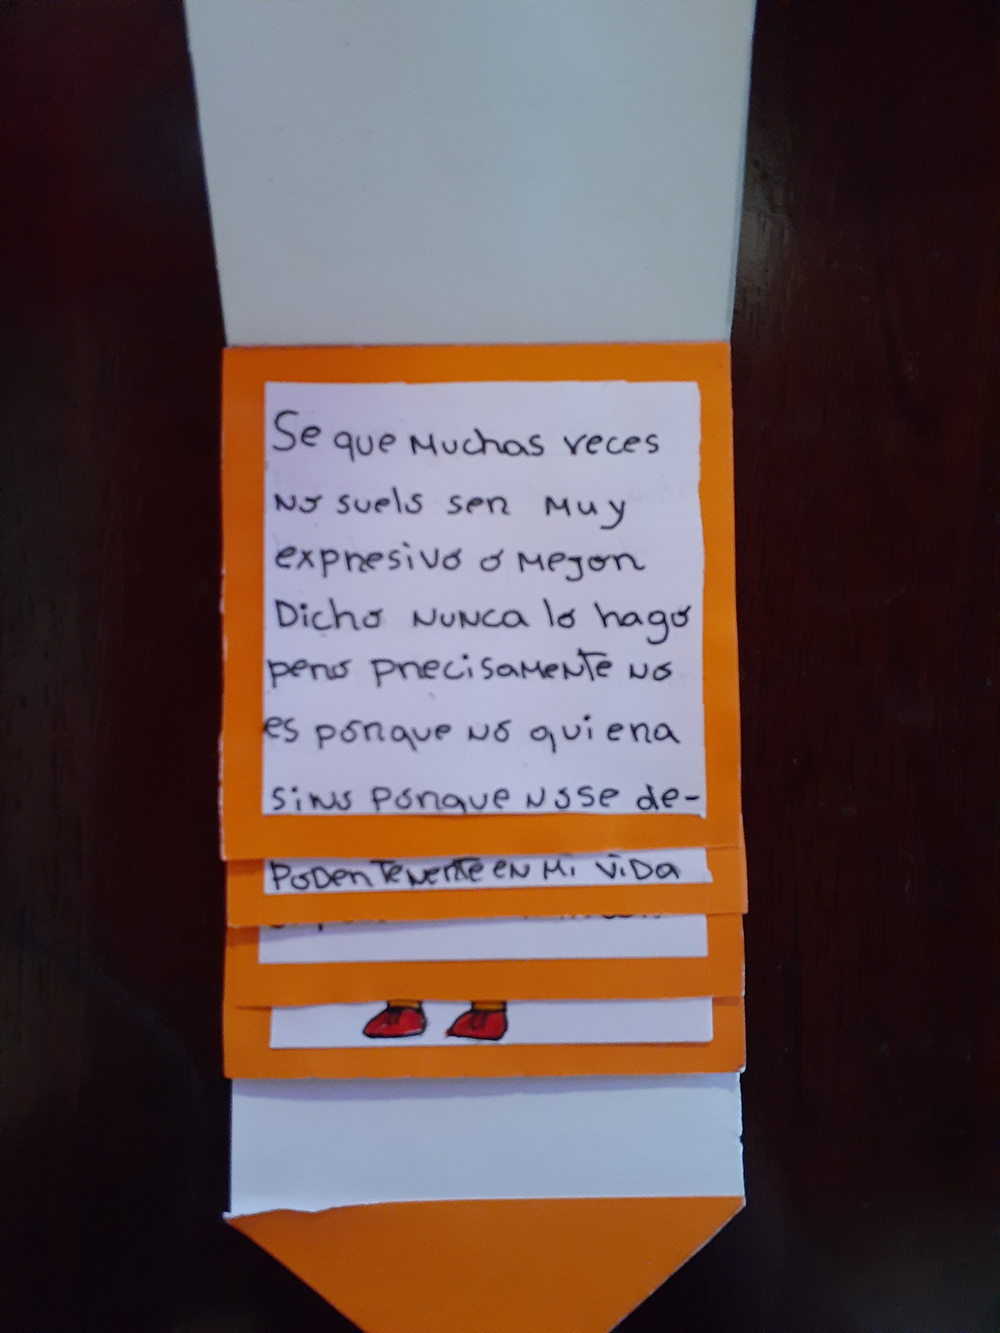 Se que muchas veces
no suelo ser muy
expresivo o mejor
Dicho nunca lo hago
pero precisamente no
es porque no quiera
sino porque nose de-
poder tenerte en mi vida